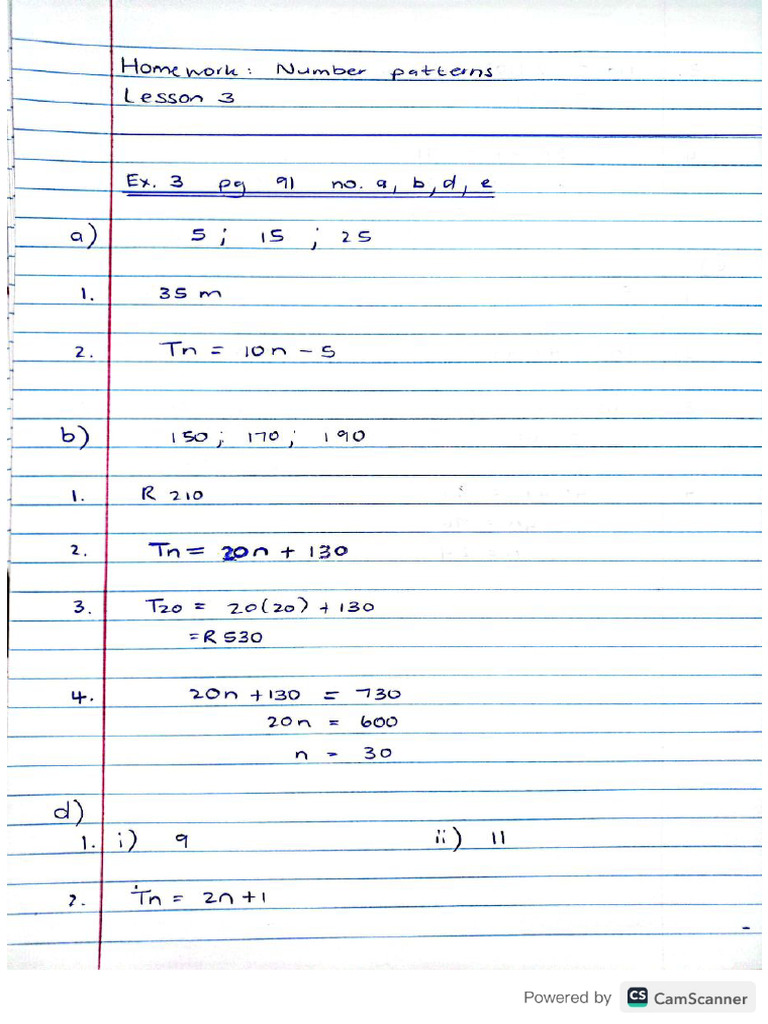 Homework: Number patterns
Lesson 3
Ex. 3 pg 91 no. a, b, d, e
a) 5 ; 15 ; 25
1. 35 m
2. Tn = 10n - 5
b) 150 ; 170 ; 190
1. R 210
2. Tn = 20n + 130
3. T20 = 20(20) + 130
= R 530
4. 20n + 130 = 730
20n = 600
n = 30
d)
1. i) 9 ii) 11
2. Tn = 2n + 1
Powered by CS CamScanner